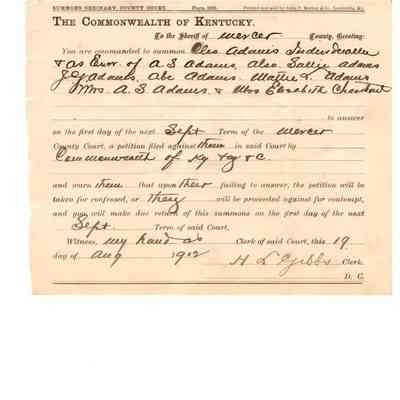 SUMMONS ORDINARY, COUNTY COURT.
THE COMMONWEALTH OF KENTUCKY,
To the Sheriff of Mercer County, Greeting:
You are commanded to summon Cleo Adams Individually
& as Exor. of A S Adams, also Sallie Adams
J C Adams, Abe Adams, Mattie L. Adams
Mrs. A. S Adams, & Mrs Elizabeth
to answer
on the first day of the next Sept Term of the Mercer
County Court, a petition filed against them in said Court by
Commonwealth of Ky &c
and warn them that upon their failing to answer, the petition will be
taken for confessed, or they will be proceeded against for contempt,
and you will make due return of this summons on the first day of the next
Sept. Term of said Court.
Witness, my hand as Clerk of said Court, this 19
day of Aug 1912
H L Gibbs Clerk.
D. C.